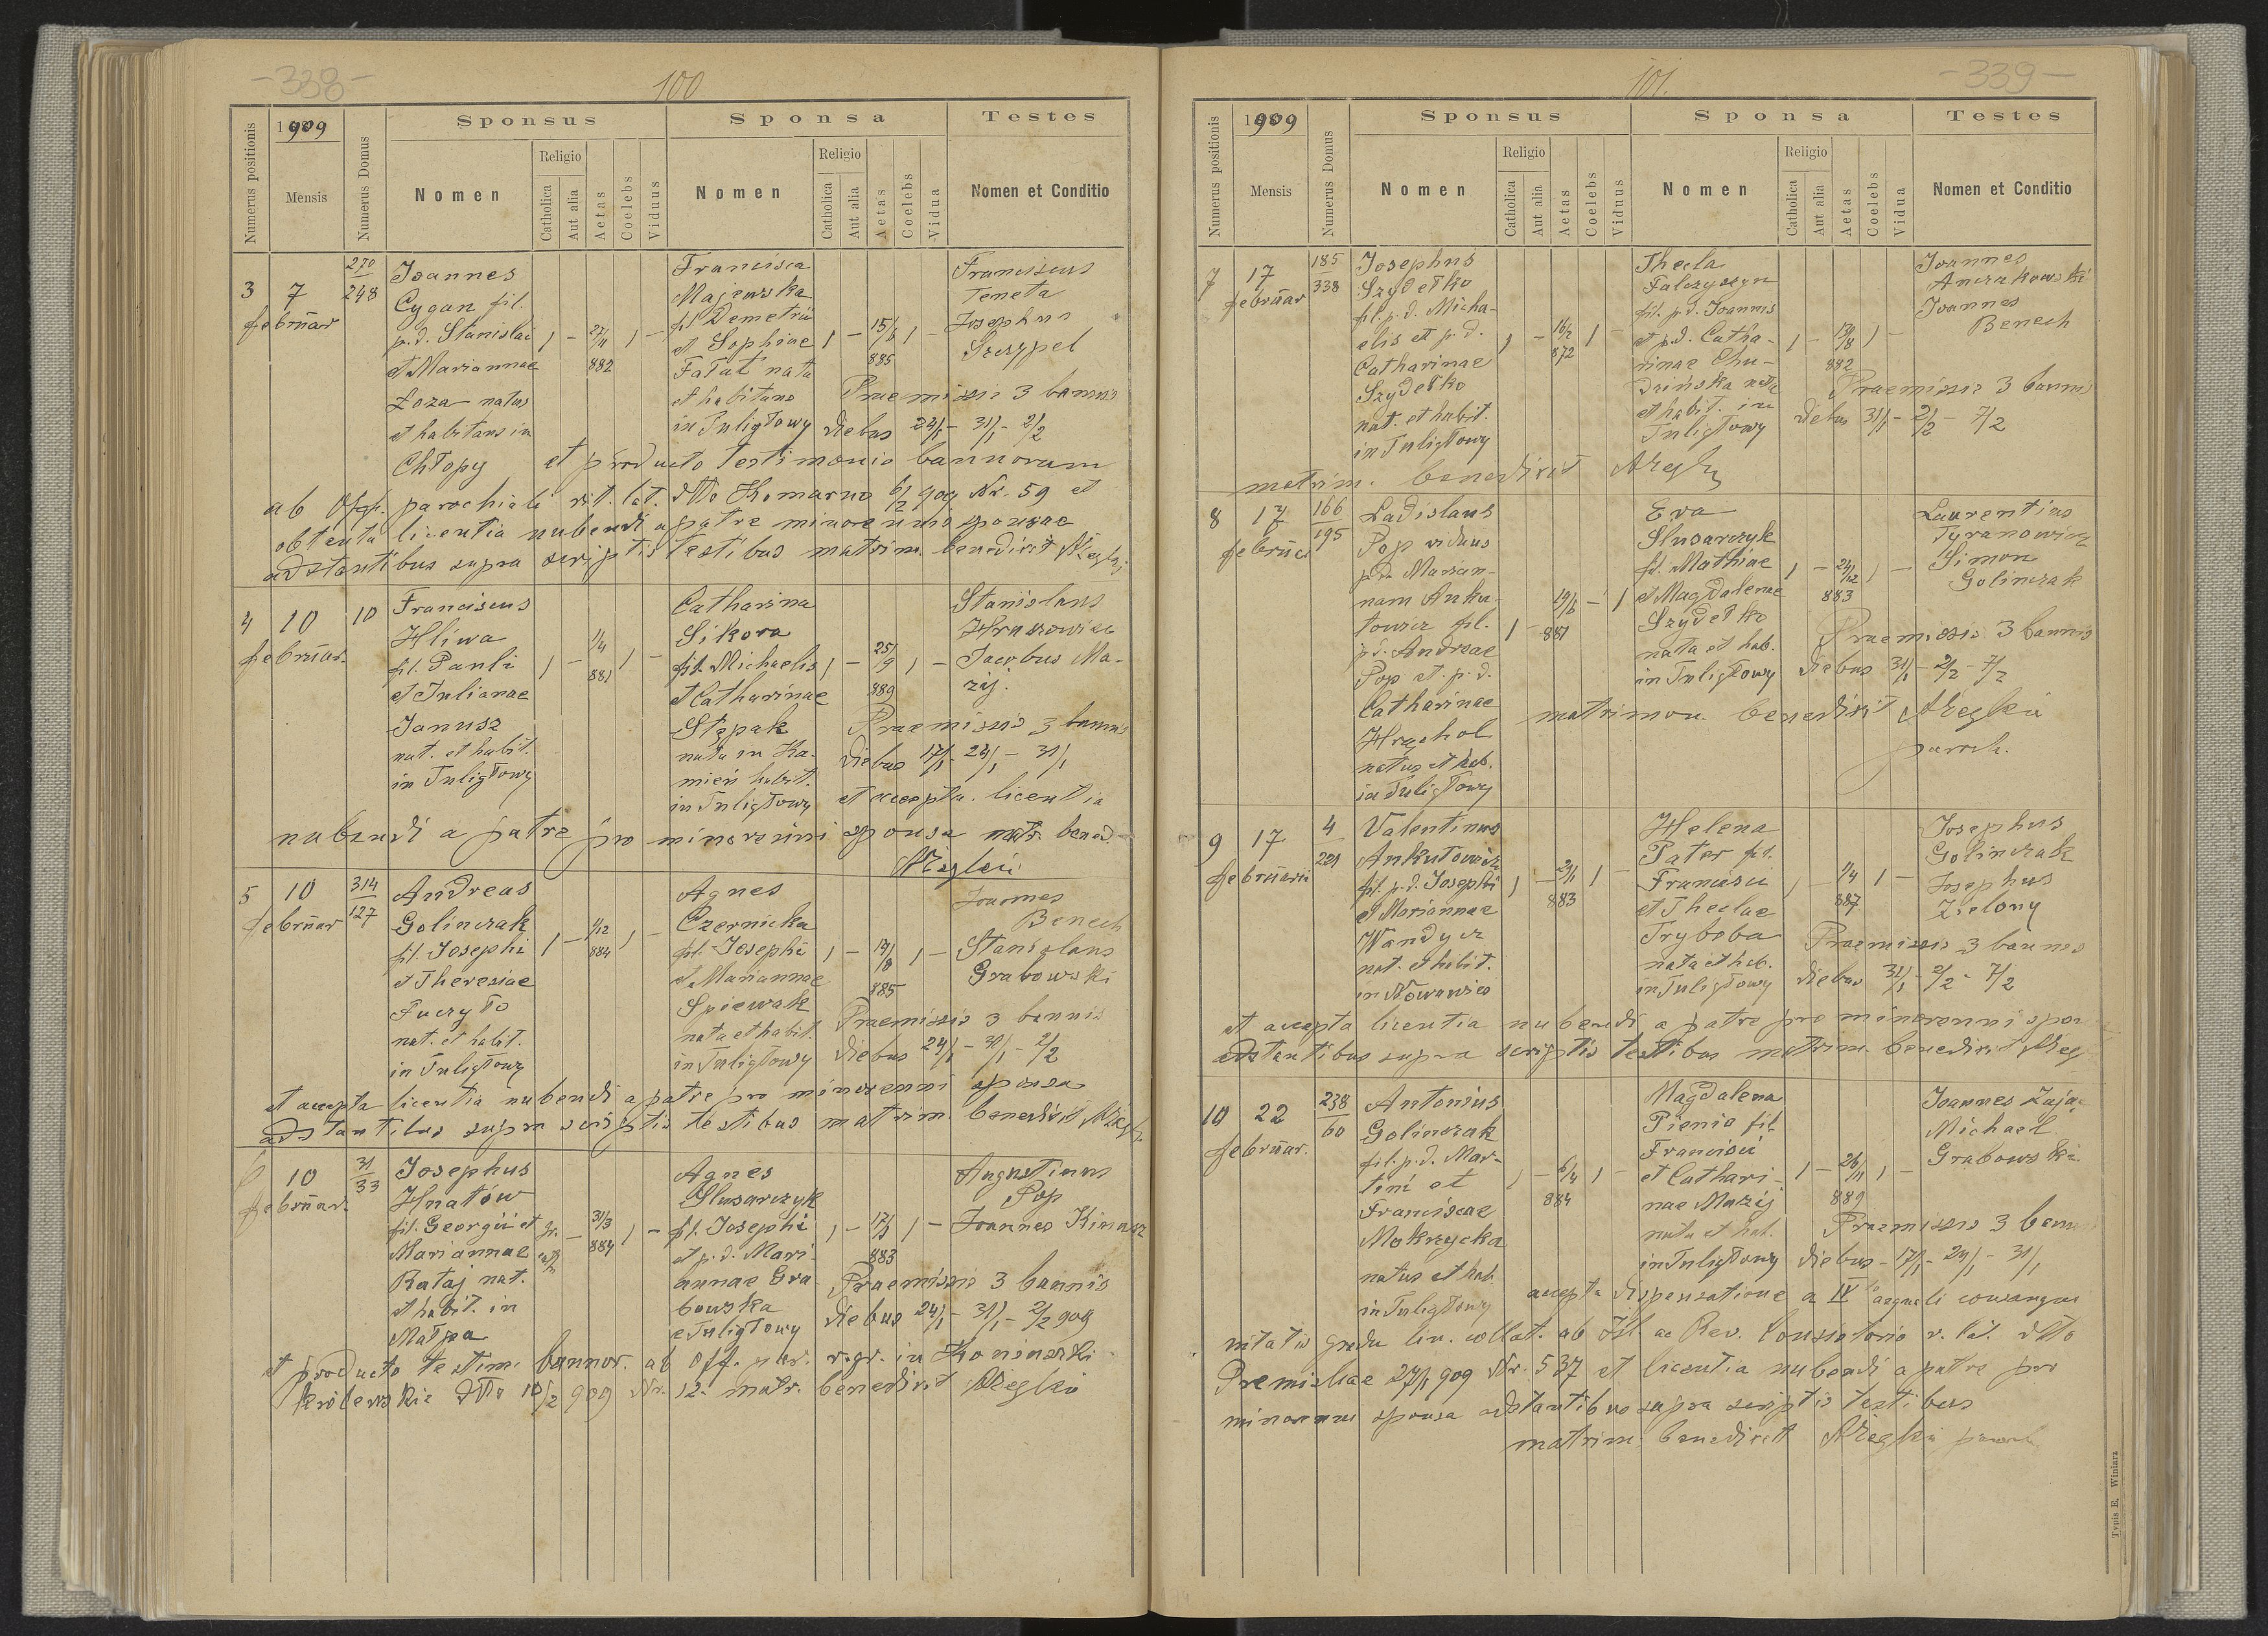 -338-
100
1909
Numerus positionis
Mensis
Numerus Domus
Sponsus
Sponsa
Testes
Nomen
Religio
Catholica
Aut alia
Aetas
Coelebs
Viduus
Nomen
Religio
Catholica
Aut alia
Aetas
Coelebs
Vidua
Nomen et Conditio
3
7
februar
270
248
Joannes
Cygan fil.
p.d. Stanislai
et Mariannae
Łoza natus
et habitans in
Chłopy
1 – 27/11 882 1 –
Francisca
Majewska
fil. Demetrii
et Sophiae
Fałat nata
et habitans
in Tuligłowy
1 – 15/8 885 1 –
Franciscus
Temeta
Josephus
Szczypel
Praemissis 3 bannis
diebus 24/1 – 31/1 – 2/2
et producto testimonio bannorum
ab Offi. parochiali rit. lat. dtto Komarno 6/2 909 Nr. 59 et
obtenta licentia nubendi a patre minorennis sponsae
adstantibus supra scriptis testibus matrim. benedixit
4
10
februar.
10
Franciscus
Hliwa
fil. Pauli
et Julianae
Janusz
nat. et habit.
in Tuligłowy
1 – 1/4 881 1 –
Catharina
Sikora
fil. Michaelis
et Catharinae
Stępak
nata in Ka-
mień habit.
in Tuligłowy
1 – 25/9 889 1 –
Stanislaus
Jacobus Ma-
zij.
Praemissis 3 bannis
diebus 17/1 – 24/1 – 31/1
et accepta licentia
nubendi a patre pro minorenni sponsa matr. bened.
5
10
februar
314
127
Andreas
Golinczak
fil. Josephi
et Theresiae
Puczyło
nat. et habit.
in Tuligłowy
1 – 1/12 884 1 –
Agnes
Czernicka
fil. Josephi
et Mariannae
Spiewak
nata et habit.
in Tuligłowy
1 – 14/8 885 1 –
Joannes
Benech
Stanislaus
Grabowski
Praemissis 3 bannis
diebus 24/1 – 31/1 – 2/2
et accepta licentia nubendi a patre pro minorenni sponsa
adstantibus supra scriptis testibus matrim. benedixit
6
10
februar.
31
33
Josephus
Hnatów
fil. Georgii et
Mariannae
Rataj nat.
et habit. in
Małpa
gr. cath. – 31/3 884 1 –
Agnes
Slusarczyk
fil. Josephi
et p.d. Mari-
annae Gra-
bowska
e Tuligłowy
1 – 17/3 883 1 –
Augustinus
Pop
Joannes Kinasz
Praemissis 3 bannis
diebus 24/1 – 31/1 – 2/2 909
et producto testim. bannor. ab Off. par. r. gr. in
dtto 10/2 909 Nr. 12. matr. benedixit
101.
-339-
1909
Numerus positionis
Mensis
Numerus Domus
Sponsus
Sponsa
Testes
Nomen
Religio
Catholica
Aut alia
Aetas
Coelebs
Viduus
Nomen
Religio
Catholica
Aut alia
Aetas
Coelebs
Vidua
Nomen et Conditio
7
17
februar
185
338
Josephus
Szydełko
fil. p.d. Micha-
elis et p.d.
Catharinae
Szydełko
nat. et habit.
in Tuligłowy
1 – 16/2 872 1 –
Thecla
Falczyszyn
fil. p.d. Joannis
et p.d. Catha-
rinae Chu-
dzińska nata
et habit. in
Tuligłowy
1 – 13/8 882 1 –
Joannes
Andrukowski
Joannes
Benech
Praemissis 3 bannis
diebus 31/1 – 2/2 – 7/2
matrim. benedixit
8
17
februa
166
195
Ladislaus
Pop viduus
p.d. Marian-
nam Anku-
towicz fil.
p.d. Andreae
Pop et p.d.
Catharinae
Hrychol
natus et hab.
in Tuligłowy
1 – 29/6 881 – 1
Eva
Slusarczyk
fil. Mathiae
et Magdalenae
Szydełko
nata et hab.
in Tuligłowy
1 – 24/12 883 1 –
Laurentius
Tyranowicz
Simon
Golinczak
Praemissis 3 bannis
diebus 31/1 – 2/2 – 7/2
matrimon. benedixit
paroch.
9
17
februarii
4
221
Valentinus
Ankutowicz
fil. p.d. Josephi
et Mariannae
Wandycz
nat. et habit.
in Nowawieś
1 – 29/1 883 1 –
Helena
Pater fil.
Francisci
et Theclae
Tryboba
nata et hab.
in Tuligłowy
1 – 1/4 887 1 –
Josephus
Golinczak
Josephus
Zielony
Praemissis 3 bannis
diebus 31/1 – 2/2 – 7/2
et accepta licentia nubendi a patre pro minorenni spon
adstantibus supra scriptis testibus matrim. benedixit
10
22
februar.
238
60
Antonius
Golinczak
fil. p.d. Mar-
tini et
Franciscae
Mokrzycka
natus et hab.
in Tuligłowy
1 – 6/4 884 1 –
Magdalena
Pienio fil.
Francisci
et Cathari-
nae Mazij
nata et hab.
in Tuligłowy
1 – 26/11 889 1 –
Joannes Zając
Michael
Grabowski
Praemissis 3 bannis
diebus – 17/1 – 24/1 – 31/1
accepta dispensatione a IV aequali consangui
nitatis gradu lin. collat. ab Ill. ac Rev. Consistorio r. lat. dtto
Premisliae 27/1 909 Nr. 537 et licentia nubendi a patre pro
minorenni sponsa adstantibus supra scriptis testibus
matrim. benedixit
Typis E. Winiarz